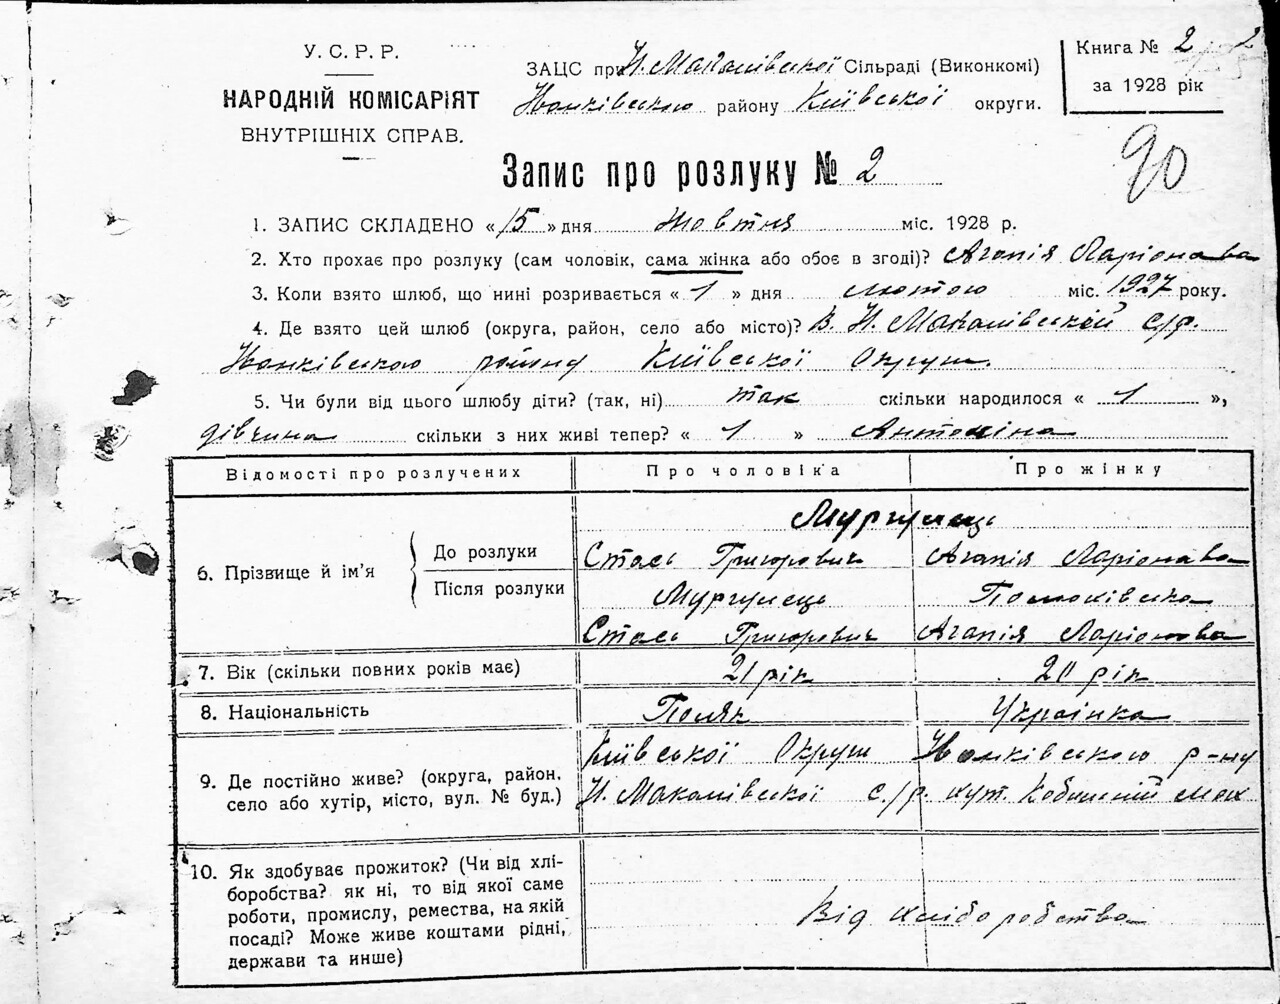 У. С. Р. Р.
НАРОДНІЙ КОМІСАРІЯТ
ВНУТРІШНІХ СПРАВ.
ЗАЦС при Н. Макалівської Сільраді (Виконкомі)
Іванківського району Київської округи.
Книга № 2 2
за 1928 рік
90
Запис про розлуку № 2
1. ЗАПИС СКЛАДЕНО « 15 » дня Жовтня міс. 1928 р.
2. Хто прохає про розлуку (сам чоловік, сама жінка або обоє в згоді)? Агапія Ларіонова
3. Коли взято шлюб, що нині розривається « 1 » дня лютого міс. 1927 року.
4. Де взято цей шлюб (округа, район, село або місто)? В. Н. Макалівській с/р.
Іванківського району Київської Округи.
5. Чи були від цього шлюбу діти? (так, ні) так скільки народилося « 1 »,
дівчина скільки з них живі тепер? « 1 » Антоніна
Відомості про розлучених Про чоловіка Про жінку
6. Прізвище й ім'я
До розлуки
Мургулець
Стась Григорович Агапія Ларіонова
Після розлуки
Мургулець
Стась Григорович Агапія Ларіонова
7. Вік (скільки повних років має) 21 рік 20 рік
8. Національність Поляк Українка
9. Де постійно живе? (округа, район, село або хутір, місто, вул. № буд.)
Київської Округи Іванківського р-ну
Н. Макалівської с./р. хут. мох
10. Як здобуває прожиток? (Чи від хлі-
боробства? як ні, то від якої саме
роботи, промислу, ремества, на якій
посаді? Може живе коштами рідні,
держави та инше)
Від хліборобства